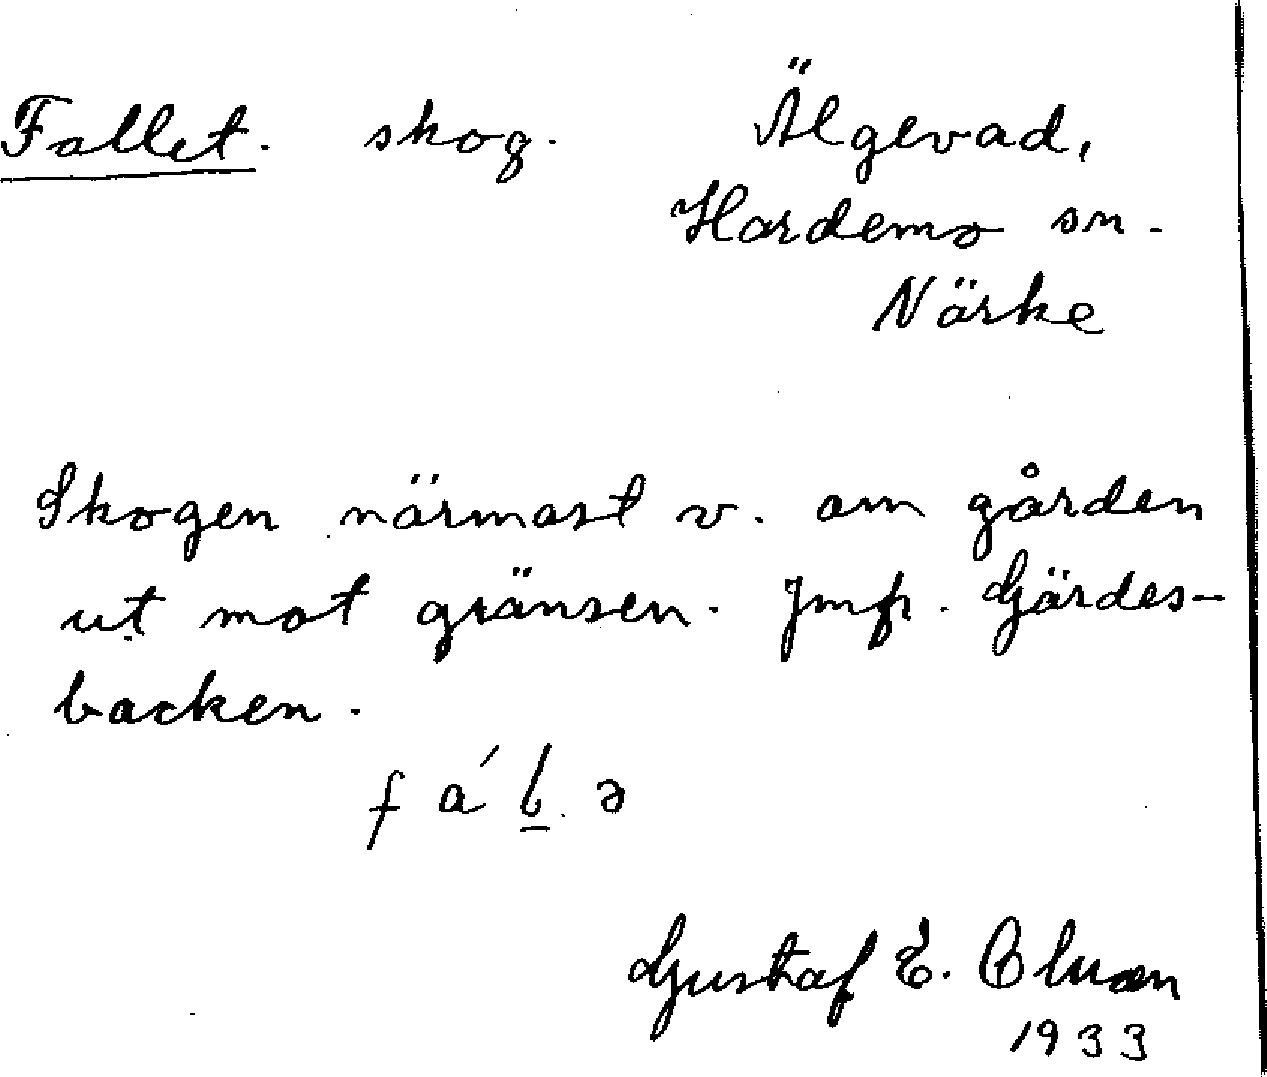 Fallet. skog. Älgevad,
Hardemo sn.
Närke
Skogen närmast v. om gården
ut mot gränsen. Jmfr. Gärdes-
backen.
Gustaf E.
1933